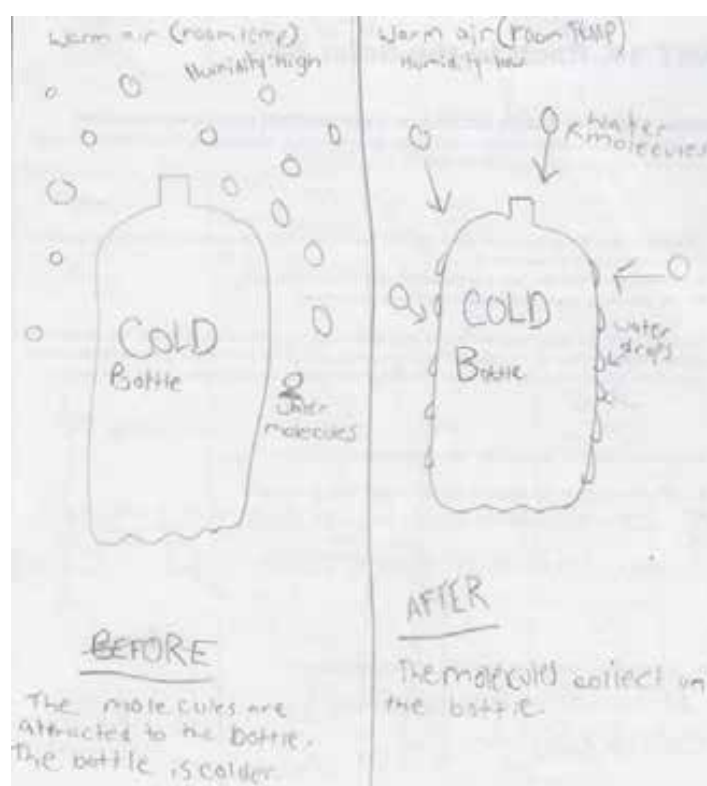 Warm air (room temp)
Humidity: High
COLD
Bottle
Water
molecules
BEFORE
The molecules are
attracted to the bottle.
The bottle is colder.
Warm air (room TEMP)
Humidity: low
Water
molecules
COLD
Bottle
water
drops
AFTER
The molecules collect on
the bottle.